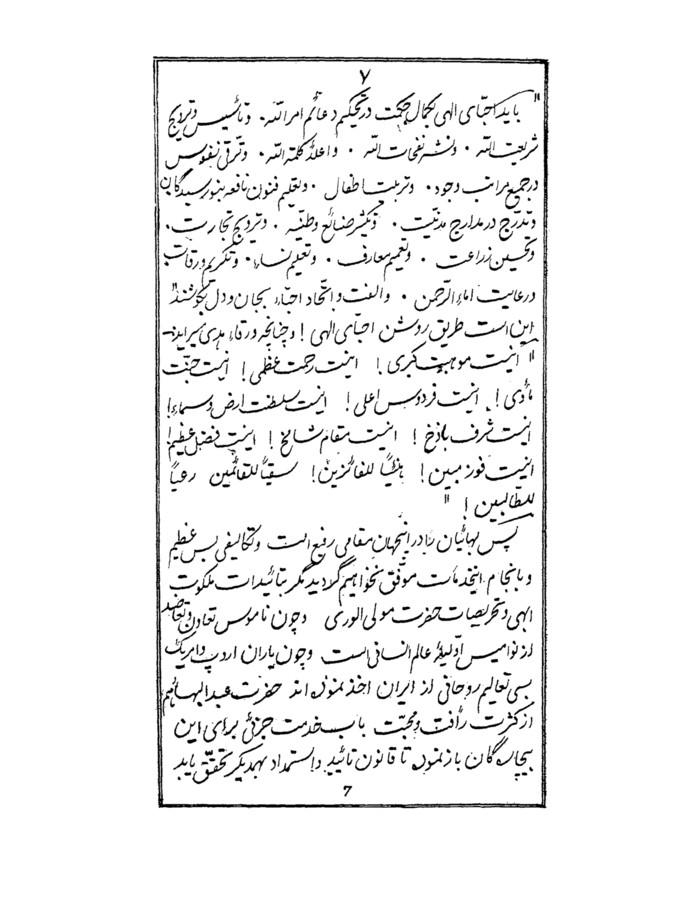 ۷
" باید احبّای الهی بکمال حکمت در تحکیم دعائم امرالله ۰ و تأسیس و ترویج
شریعت الله ۰ و نشر نفحات الله ۰ و اعلاء کلمة الله ۰ و ترقّی نفوس
در جمیع مراتب وجود ۰ و تربیت اطفال ۰ و تعلیم فنون نافعه بنورسیدگان
و تدرّج در مدارج مدنیّت ۰ و تکثیر صنائع وطنیّه ۰ و ترویج تجارت ۰
و تحسین زراعت ۰ و تعمیم معارف ۰ و تعلیم نساء ۰ و تکریم ورقات
و رعایت اماءالرّحمن ۰ و الفت و اتّحاد احبّاء بجان و دل بکوشند"
این است طریق روشن احبّای الهی ! و چنانچه ورقاء هدی میسراید:
" اینست موهبت کبری ! اینست رحمت عظمی ! اینست جنّت
مأوی ! اینست فردوس اعلی ! اینست سلطنت ارض و سماء !
اینست شرف باذخ ! اینست مقام شامخ ! اینست فضل عظیم !
اینست فوز مبین ! هنیئاً للفائزین ! سقیاً للقائمین رعیاً
للطّالبین ! "
پس بهائیان را در اینجهان مقامی رفیع است و تکالیفی بس عظیم
و بانجام اینخدمات موفّق نخواهیم گردید مگر بتائیدات ملکوت
الهی و تحریصات حضرت مولی الوری و چون ناموس تعاون و تعاضد
از نوامیس اوّلیّهٔ عالم انسانی است و چون یاران اروپ و امریک
بسی تعالیم روحانی از ایران اخذ نموده اند حضرت عبدالبهائهم
از کثرت رأفت و محبّت باب خدمت جزئی برای این
بیچاره گان باز نمود تا قانون تائید و استمداد بهمدیگر تحقّق یابد
7